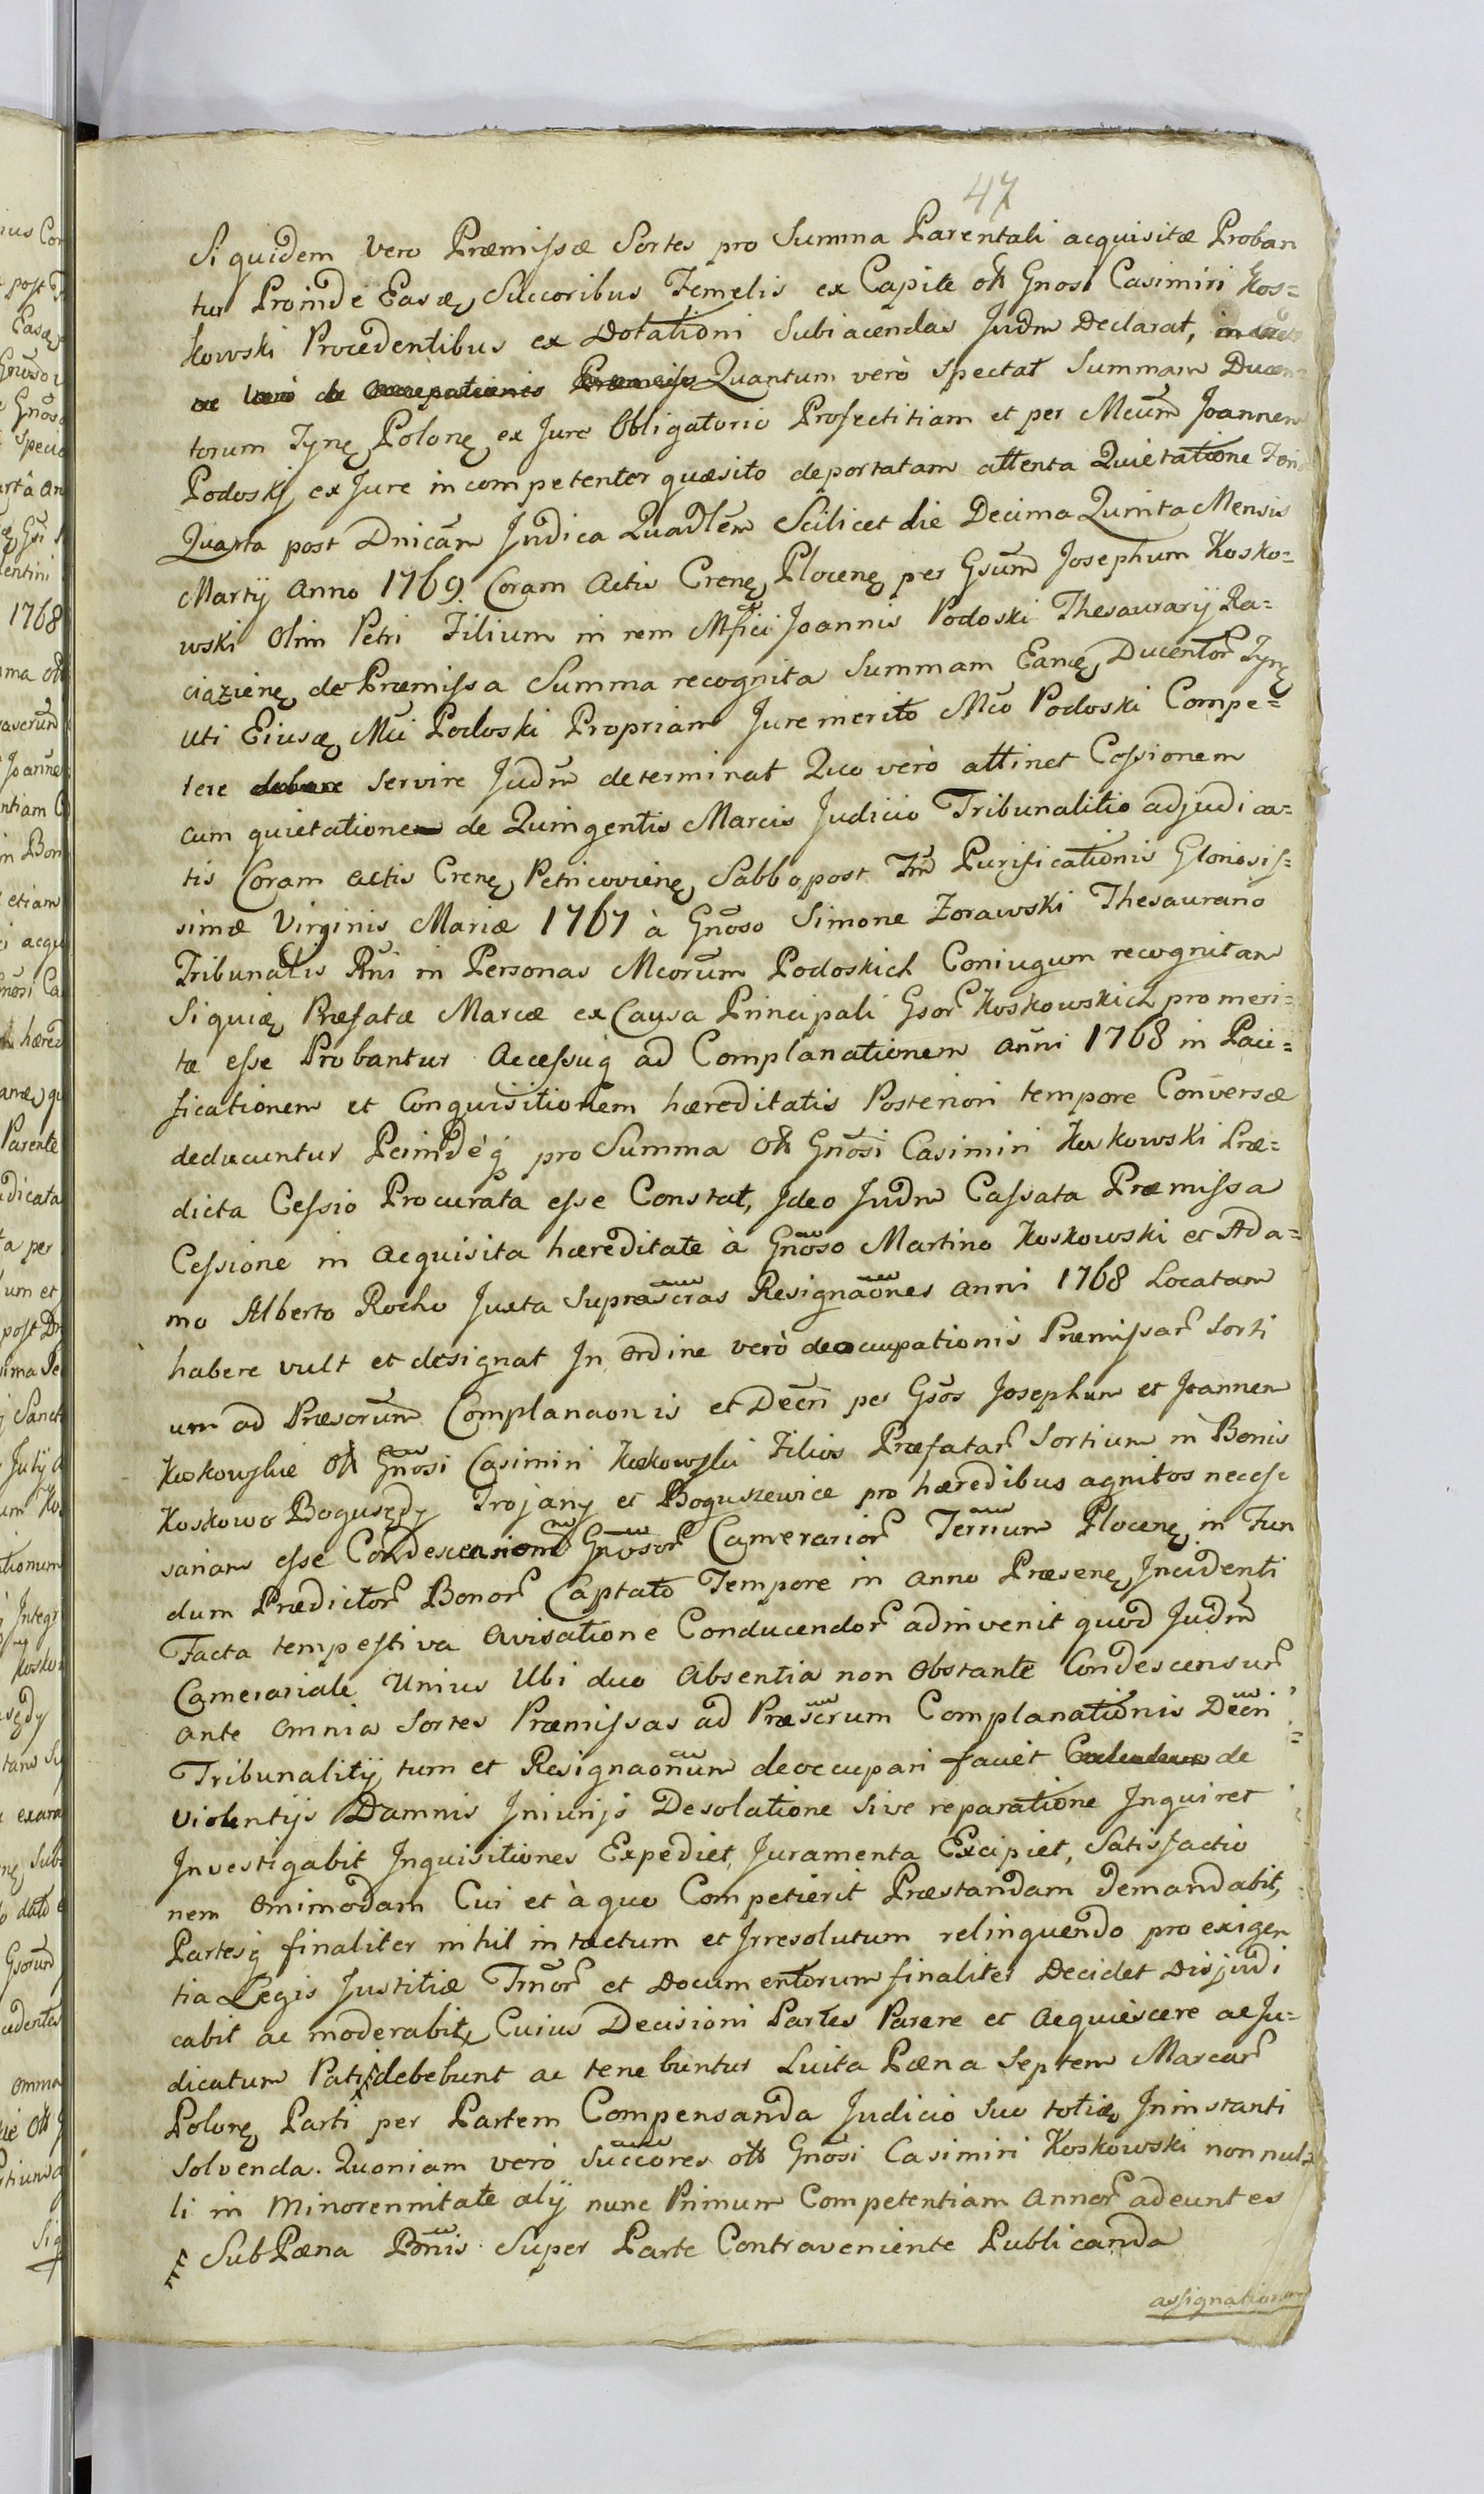 47
Siquidem vero Præmissæ Sortes pro Summa Parentali acquisitæ Proban
tur Proinde Easq, Succoribus Femelis ex Capite olt Gnosi Casimiri Kos=
kowski Procedentibus ex Dotationi Subiacendas Judm Declarat,
Quantum verò spectat Summam Ducen
torum Tynę Polonę ex Jure Obligatorio Profectitiam et per Mcum Joannem
Podoskj ex Jure incompetenter quæsito deportatam attenta Quietatione Feria
Quarta post Dnicam Judica Quadlem Scilicet die Decima Quinta Mensis
Martij Anno 1769. Coram Actis Crenę Plocenę per Gsum Josephum Kosko=
wski Olim Petri Filium in rem Mfici Joannis Podoski Thesaurarij Ra=
ciązienę de Præmissa Summa recognita Summam Eanę, Ducentor Tynę
uti Eiusq, Mci Podoski Propriam Jure merito Mco Podoski Compe=
tere servire Judm determinat Quo verò attinet Cessionem
cum quietatione de Quingentis Marcis Judicio Tribunalitio adjudica=
tis Coram Actis Crenę Petricovienę Sabbo post Fm Purificationis Gloriosis=
simæ Virginis Mariæ 1767 à Gnoso Simone Zorawski Thesaurario
Tribunalis Rni in Personas Mcorum Podoskich Coniugum recognitam
Siquię Præfatæ Marcæ ex Causa Principali Gsor Koskowskich promeri=
tæ esse Probantur Accessuq ad Complanationem anni 1768 in Paci=
ficationem et Conquisitionem hæreditatis Posteriori tempore Conversæ
deducuntur Perindéq pro Summa Olt Gnosi Casimiri Koskowski Præ=
dicta Cessio Procurata esse Constat, Ideo Judm Cassata Præmissa
Cessione in Acquisita hæreditate à Gnoso Martino Koskowski et Ada=
mo Alberto Rocho Juxta Suprascras Resignaones anni 1768 Locatam
habere vult et designat In Ordine verò deoccupationis Præmissar Sorti
um ad Præscrum Complanaonis et Decri per Gsos Josephum et Joannem
Koskowskie Olt Gnosi Casimiri Koskowski Filios Præfatar Sortium in Bonis
Koskowo Bogusędy Trojany et Boguszewice pro hæredibus agnitos necess
sariam esse Condescensionem Gnosor Camerarior Terrium Plocenę in Fun
dum Prædictor Bonor Captato Tempore in anno Præsenę Incidenti
Facta tempestiva Avisatione Conducendor adinvenit quod Judm
Camerariale Unius Ubi duo Absentia non Obstante Condescensur
ante omnia Sortes Præmissas ad Præscrum Complanationis Decri
Tribunalitij tum et Resignaonum deoccupari faciet de
Violentijs Damnis Iniurijs Desolatione sive reparatione Inquiret
Investigabit Inquisitiones Expediet, Juramenta Excipiet, Satisfactio
nem Omimodam Cui et à quo Competierit Præstandam demandabit,
Partesq finaliter nihil intactum et Irresolutum relinquendo pro exigen
tia Legis Justitiæ Tmor et Documentorum finaliter Decidet Disjudi
cabit ac moderabit, Cuius Decisioni Partes Parere et Acquiescere ac Ju=
dicatum Pati debebunt ac tenebuntur Luita Pæna Septem Marcar
Polonę Parti per Partem Compensanda Judicio suo totię Ininstanti
Solvenda. Quoniam verò Succores olt Gnosi Casimiri Koskowski nonnul=
li in Minorennitate alij nunc Primum Competentiam Annor adeuntes
Sub Pæna Bonis Super Parte Contraveniente Publicanda
assignationem